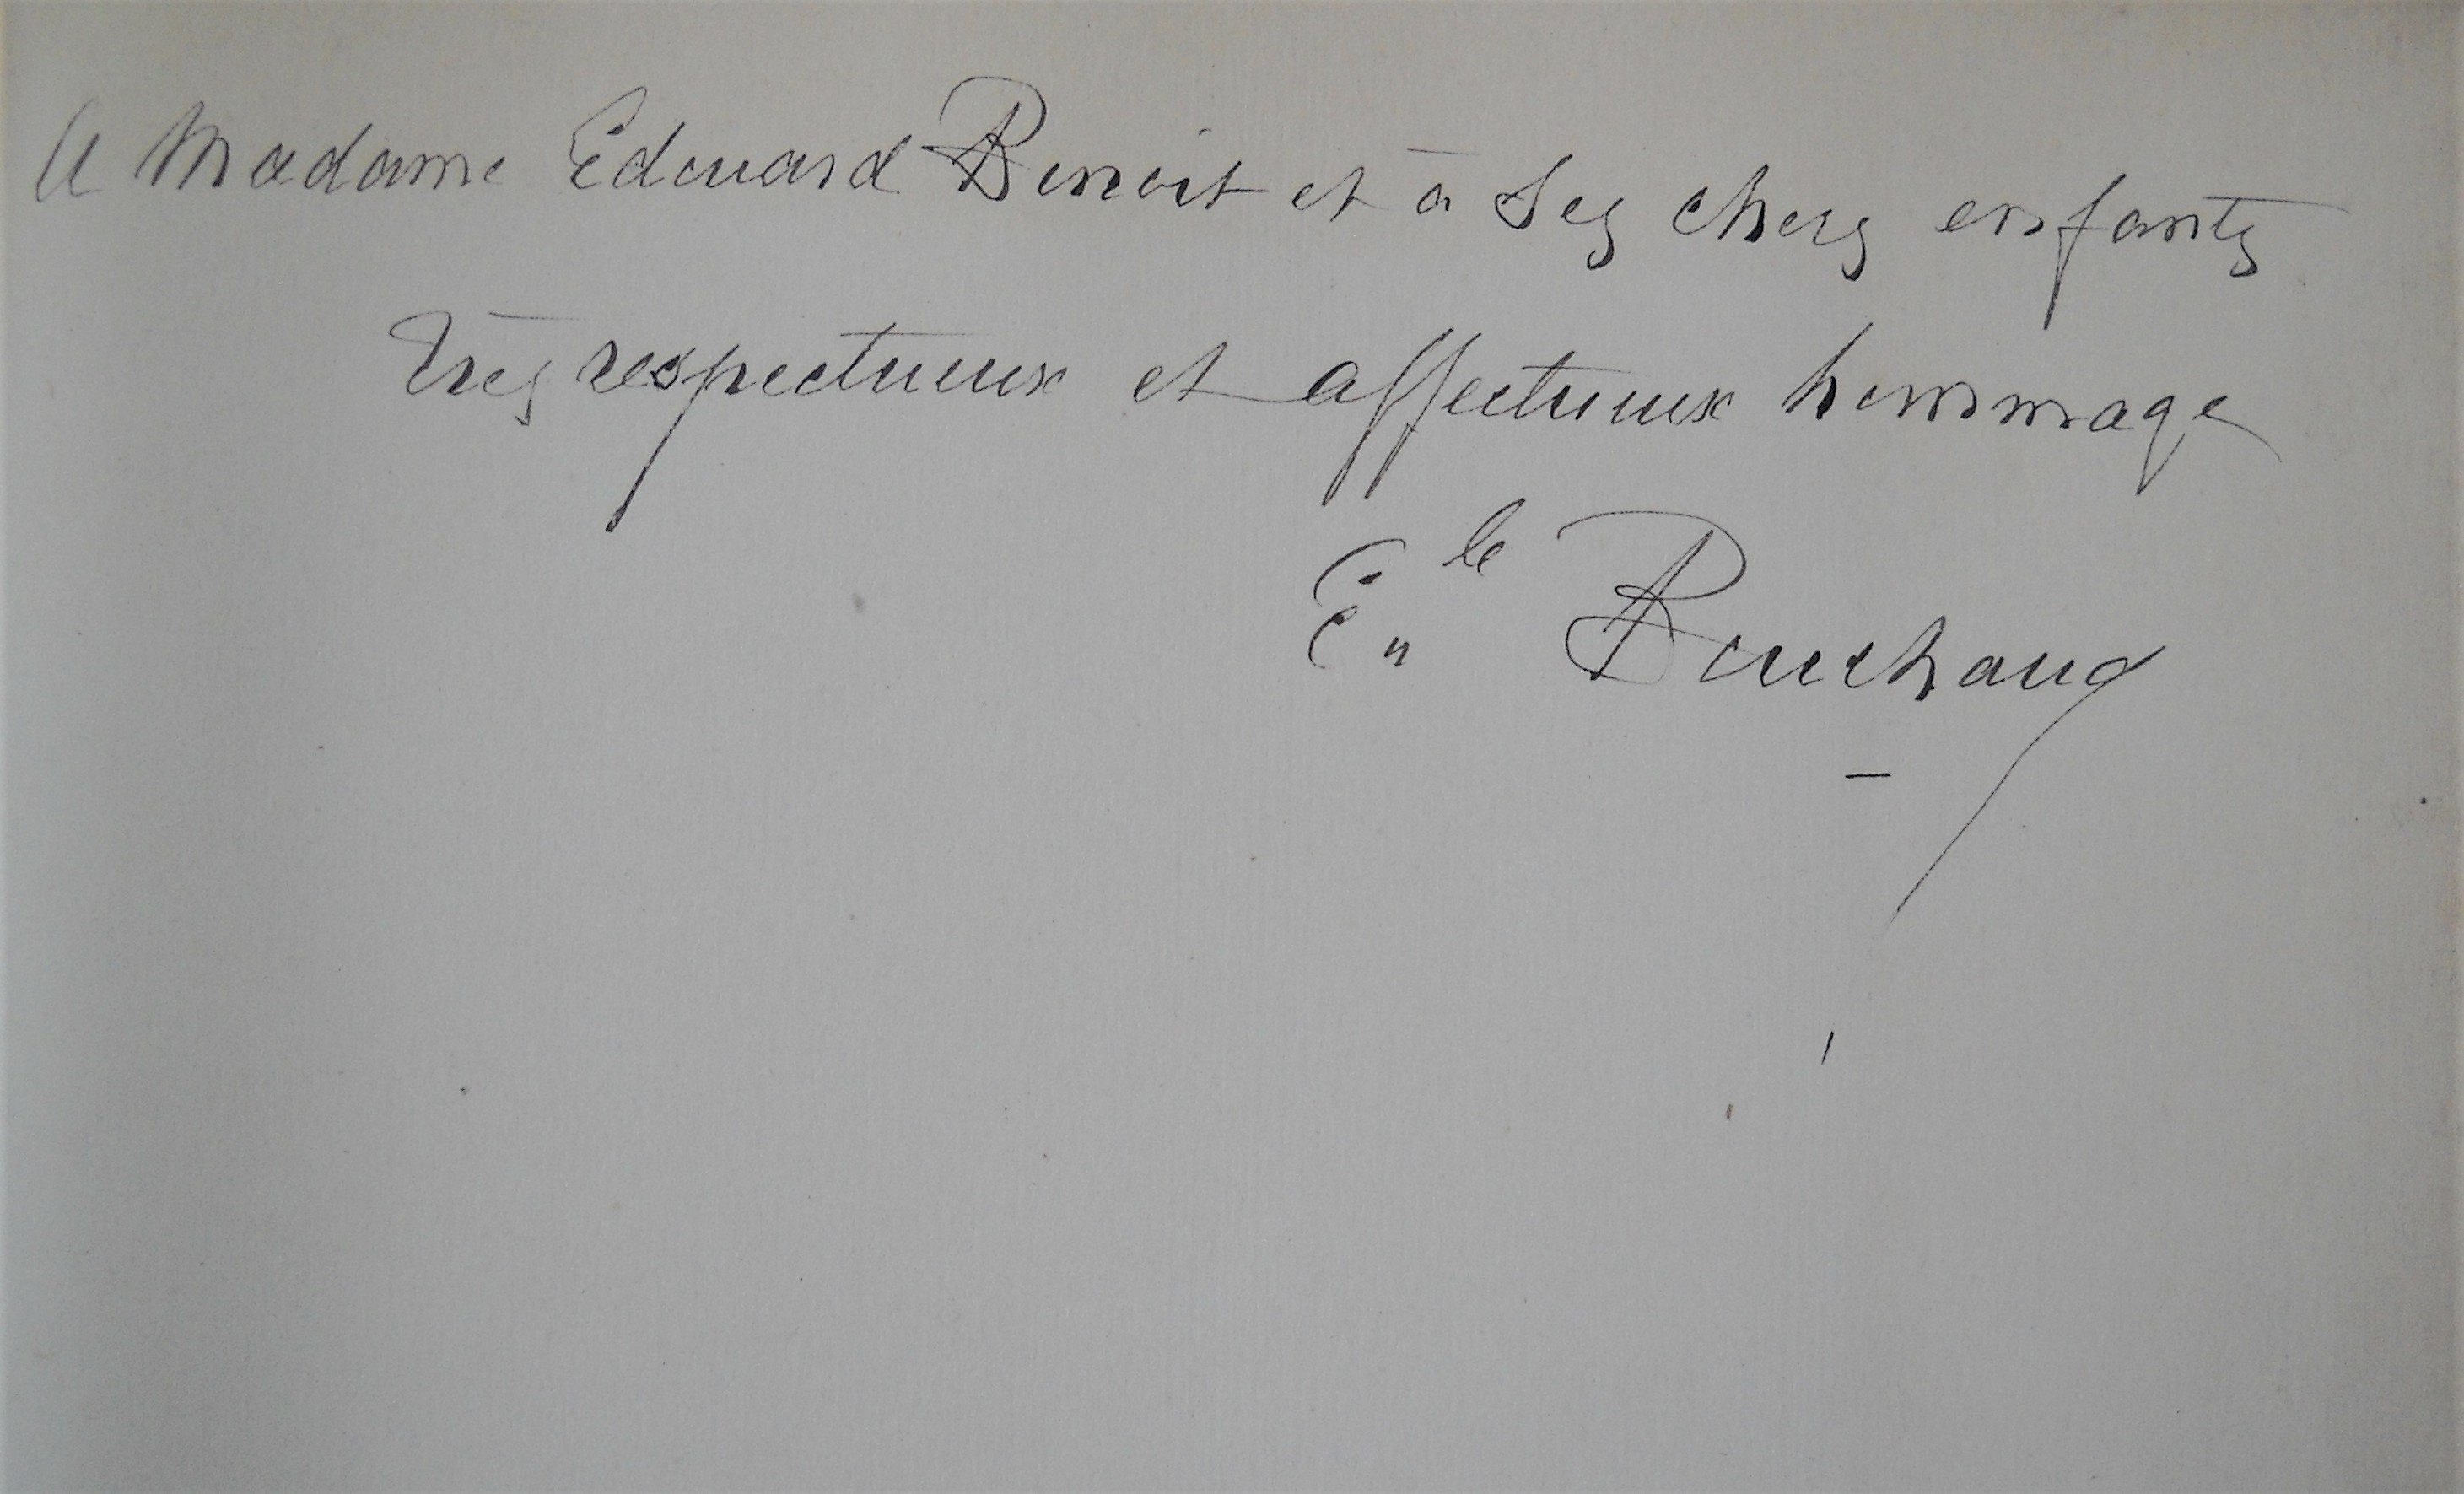 A Madame Edouard Benoit et à ses chers enfants
très respectueux et affectueux hommage
E.le Bouchaud